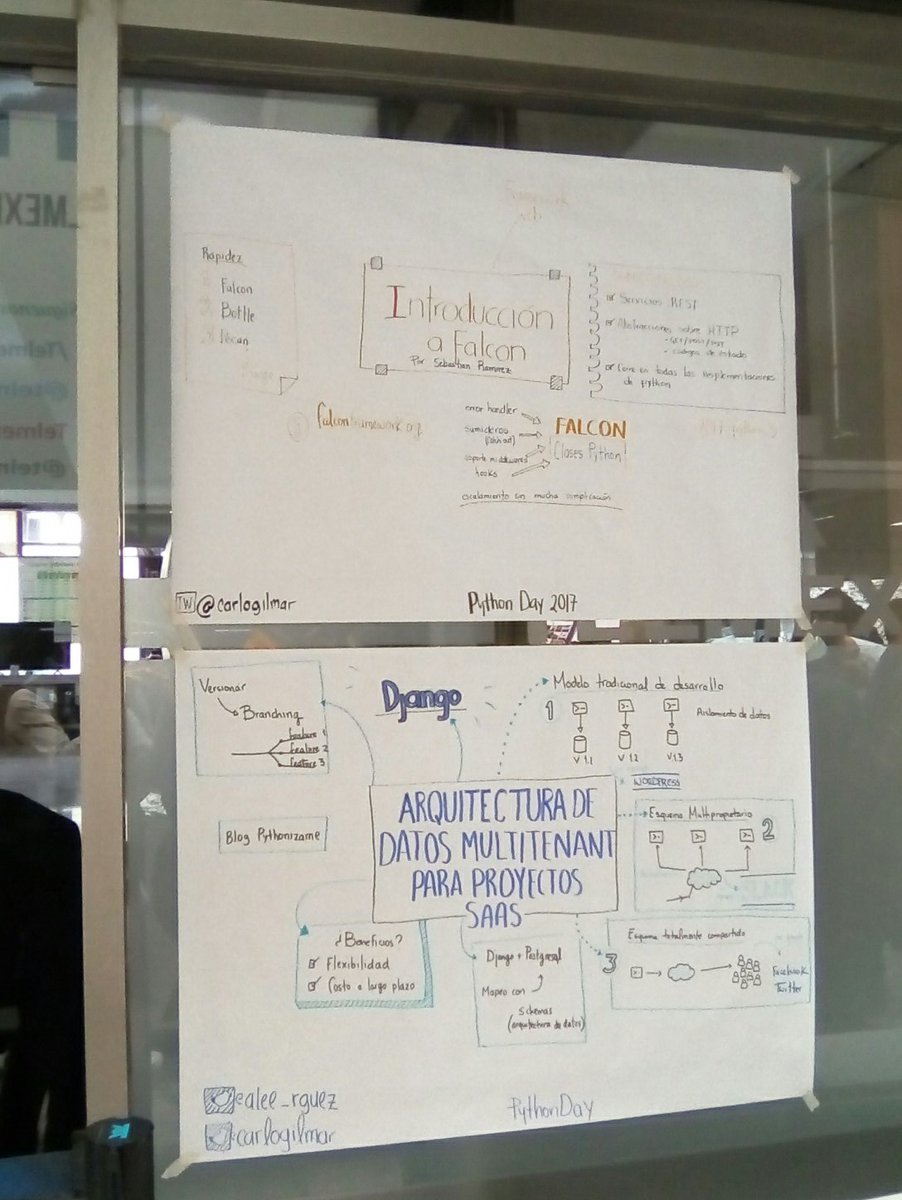 Framework
web
Rapidez
Falcon
Bottle
Introducción
a Falcon
Por Sebastian Ramirez
Servicios REST
Abstracciones sobre HTTP
- GET/POST/PUT
- codigos de estado
Corre en todas las implementaciones
de python
falconframework.org
error handler
sumideros
soporte middlewares
hooks
FALCON
Clases Python
escalamiento sin mucha complicación
TW @carlogilmar
Python Day 2017
Versionar
Branching
feature 1
feature 2
feature 3
Django
Modelo tradicional de desarrollo
1
Aislamiento de datos
V 1.1
V 1.2
V 1.3
WORDPRESS
Blog Pythonizame
ARQUITECTURA DE
DATOS MULTITENANT
PARA PROYECTOS
SAAS
Esquema Multipropietario
2
¿Beneficios?
Flexibilidad
Costo a largo plazo
Django + Postgresql
Mapeo con
schemas
(arquitectura de datos)
Esquema totalmente compartido
3
Facebook
Twitter
@alee_rguez
@carlogilmar
PythonDay